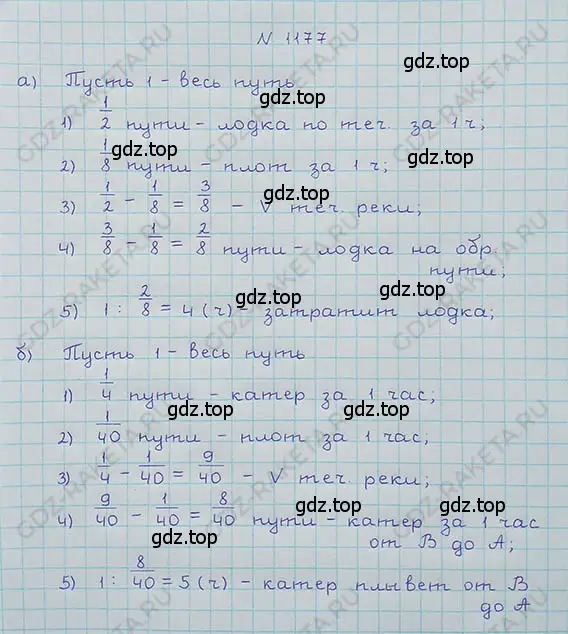 N 1177
а) Пусть 1 - весь путь
1) 1/2 пути - лодка по теч. за 1 ч;
2) 1/8 пути - плот за 1 ч;
3) 1/2 - 1/8 = 3/8 - V теч. реки;
4) 3/8 - 1/8 = 2/8 пути - лодка на обр.
пути;
5) 1 : 2/8 = 4 (ч) - затратит лодка;
б) Пусть 1 - весь путь
1) 1/4 пути - катер за 1 час;
2) 1/40 пути - плот за 1 час;
3) 1/4 - 1/40 = 9/40 - V теч. реки;
4) 9/40 - 1/40 = 8/40 пути - катер за 1 час
от В до А;
5) 1 : 8/40 = 5 (ч) - катер плывет от В
до А
gdz.top
gdz.top
gdz.top
gdz.top
gdz.top
gdz.top
gdz.top
gdz.top
gdz.top
gdz.top
GDZ-RAKETA.RU
GDZ-RAKETA.RU
GDZ-RAKETA.RU
GDZ-RAKETA.RU
GDZ-RAKETA.RU
GDZ-RAKETA.RU